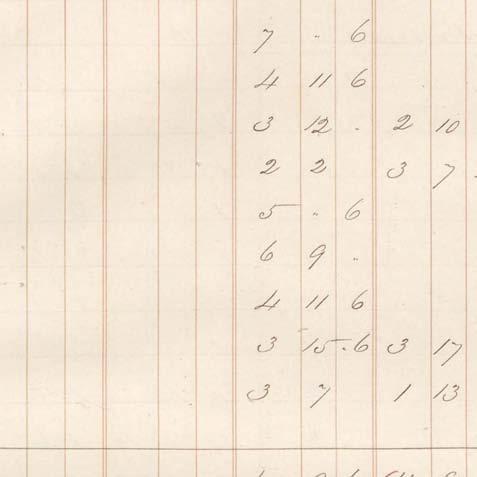 7 " 6
4 11 6
3 12 . 2 10
2 2 3 7
5 " 6
6 9 "
4 11 6
3 15 . 6 3 17
3 7 1 13